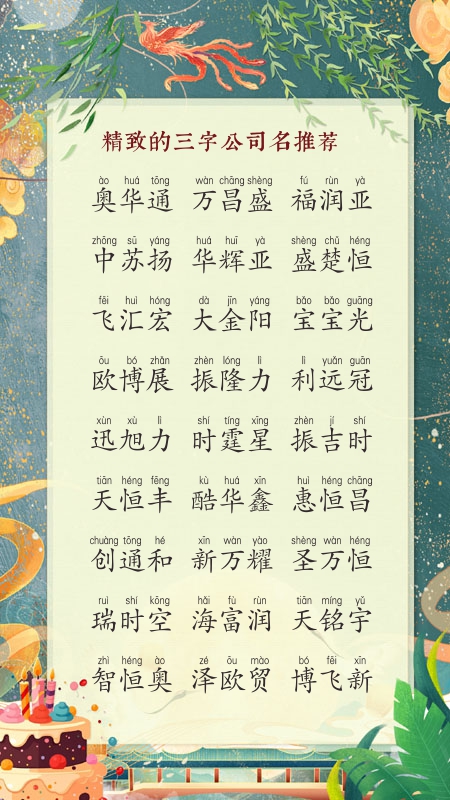 精致的三字公司名推荐
ào huá tōng wàn chāng shèng fú rùn yà
奥华通 万昌盛 福润亚
zhōng sū yáng huá huī yà shèng chǔ héng
中苏扬 华辉亚 盛楚恒
fēi huì hóng dà jīn yáng bǎo bǎo guāng
飞汇宏 大金阳 宝宝光
ōu bó zhǎn zhèn lóng lì lì yuǎn guān
欧博展 振隆力 利远冠
xùn xù lì shí tíng xīng zhèn jí shí
迅旭力 时霆星 振吉时
tiān héng fēng kù huá xīn huì héng chāng
天恒丰 酷华鑫 惠恒昌
chuàng tōng hé xīn wàn yào shèng wàn héng
创通和 新万耀 圣万恒
ruì shí kōng hǎi fù rùn tiān míng yǔ
瑞时空 海富润 天铭宇
zhì héng ào zé ōu mào bó fēi xīn
智恒奥 泽欧贸 博飞新